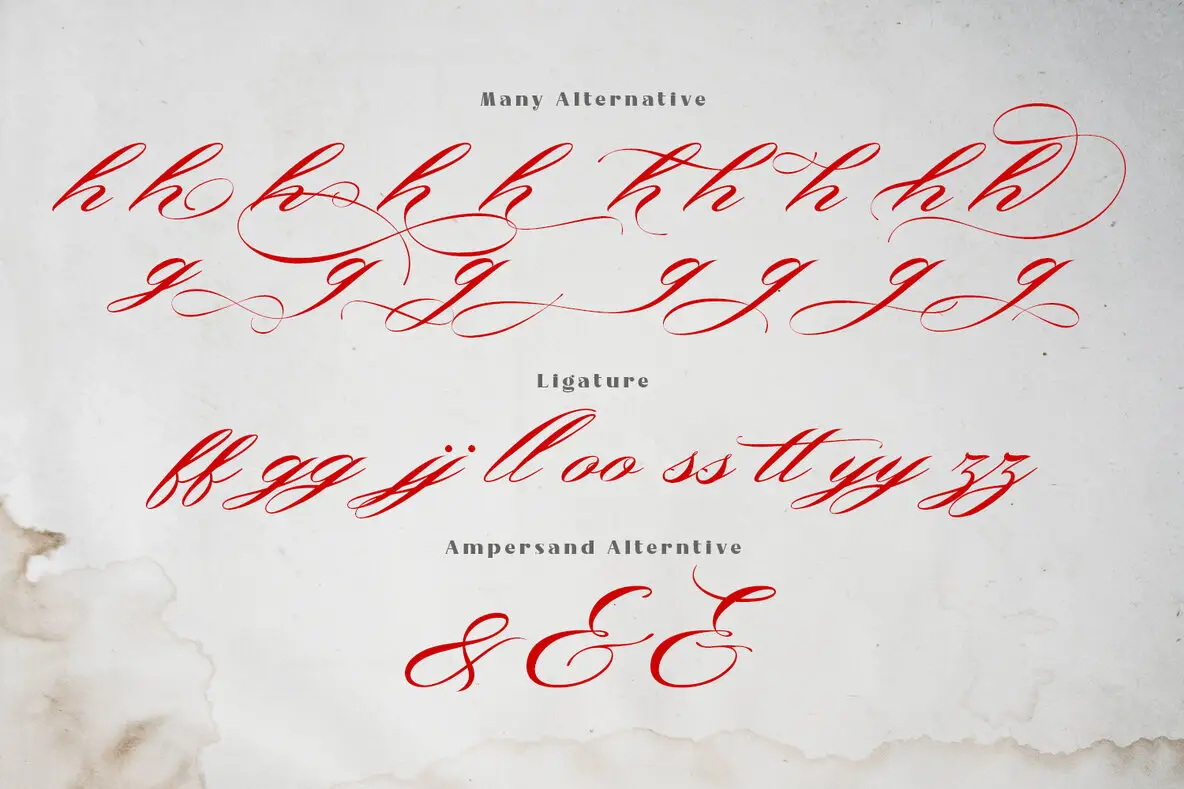 Many Alternative
h h h h h h h h h h
g g g g g g g
Ligature
ff gg jj ll oo ss tt yy zz
Ampersand Alterntive
& & &